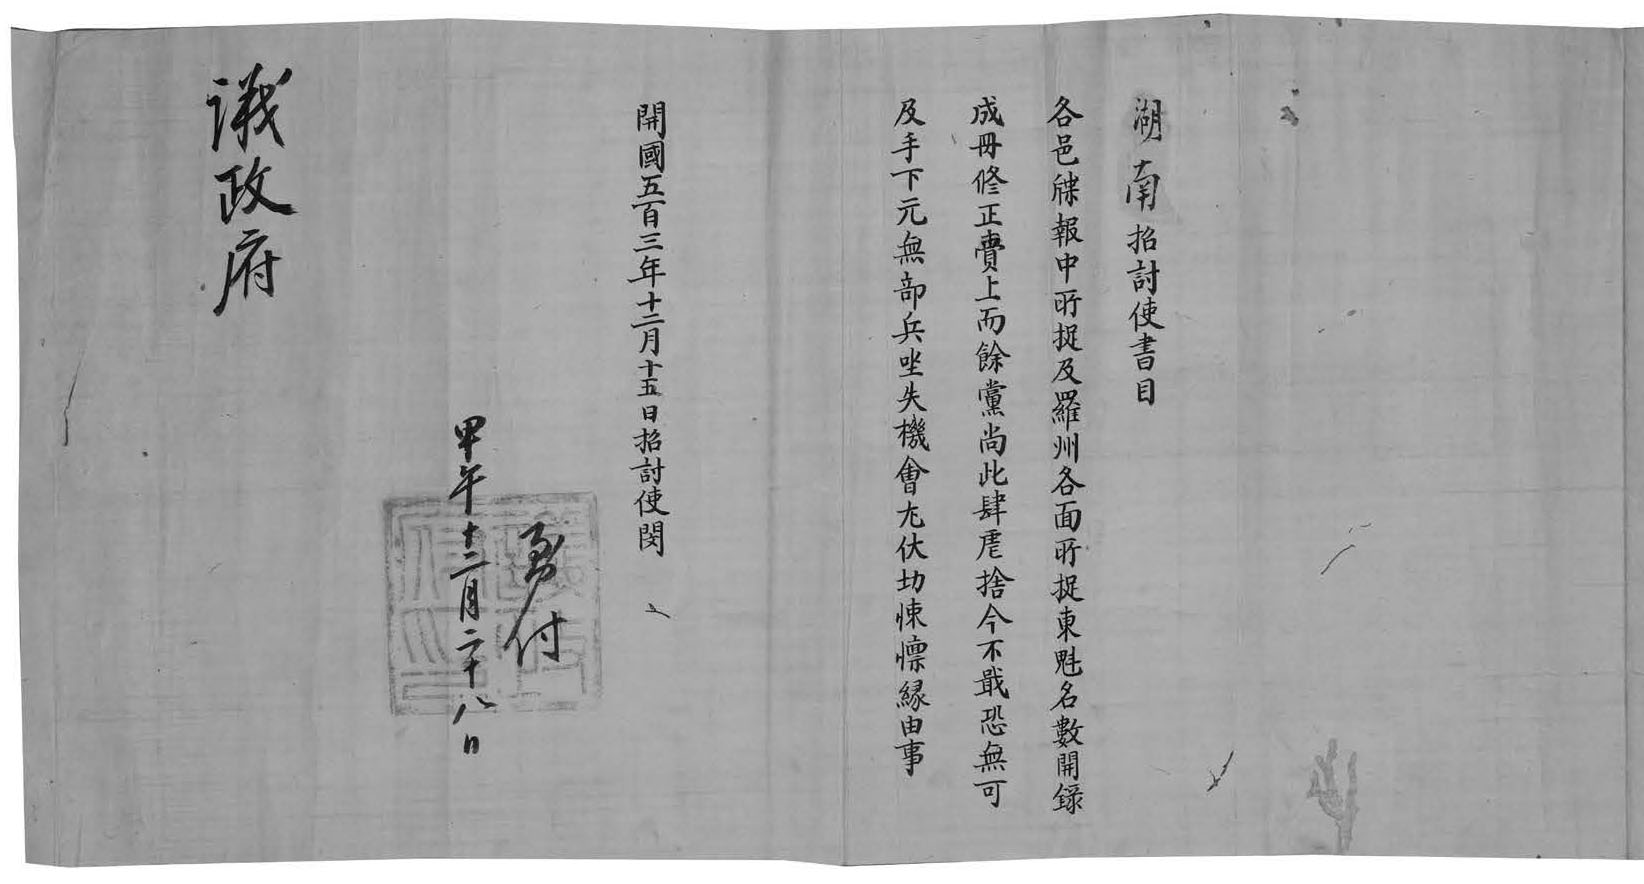 湖南招討使書目
各邑牒報中所捉及羅州各面所捉東魁名數開錄
成冊修正賷上而餘黨尚此肆虐捨今不戢恐無可
及手下元無部兵坐失機會尤伏切悚懍緣由事
開國五百三年十二月十五日招討使閔
到付
甲午十二月二十八日
議政府